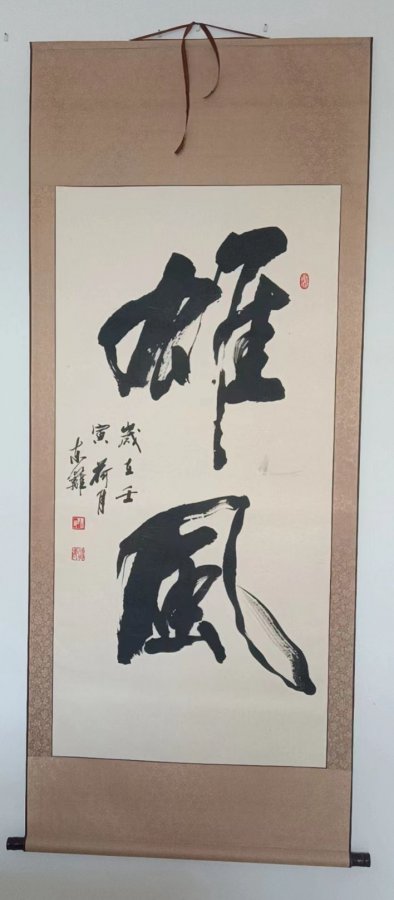 雄風
歲在壬
寅荷月